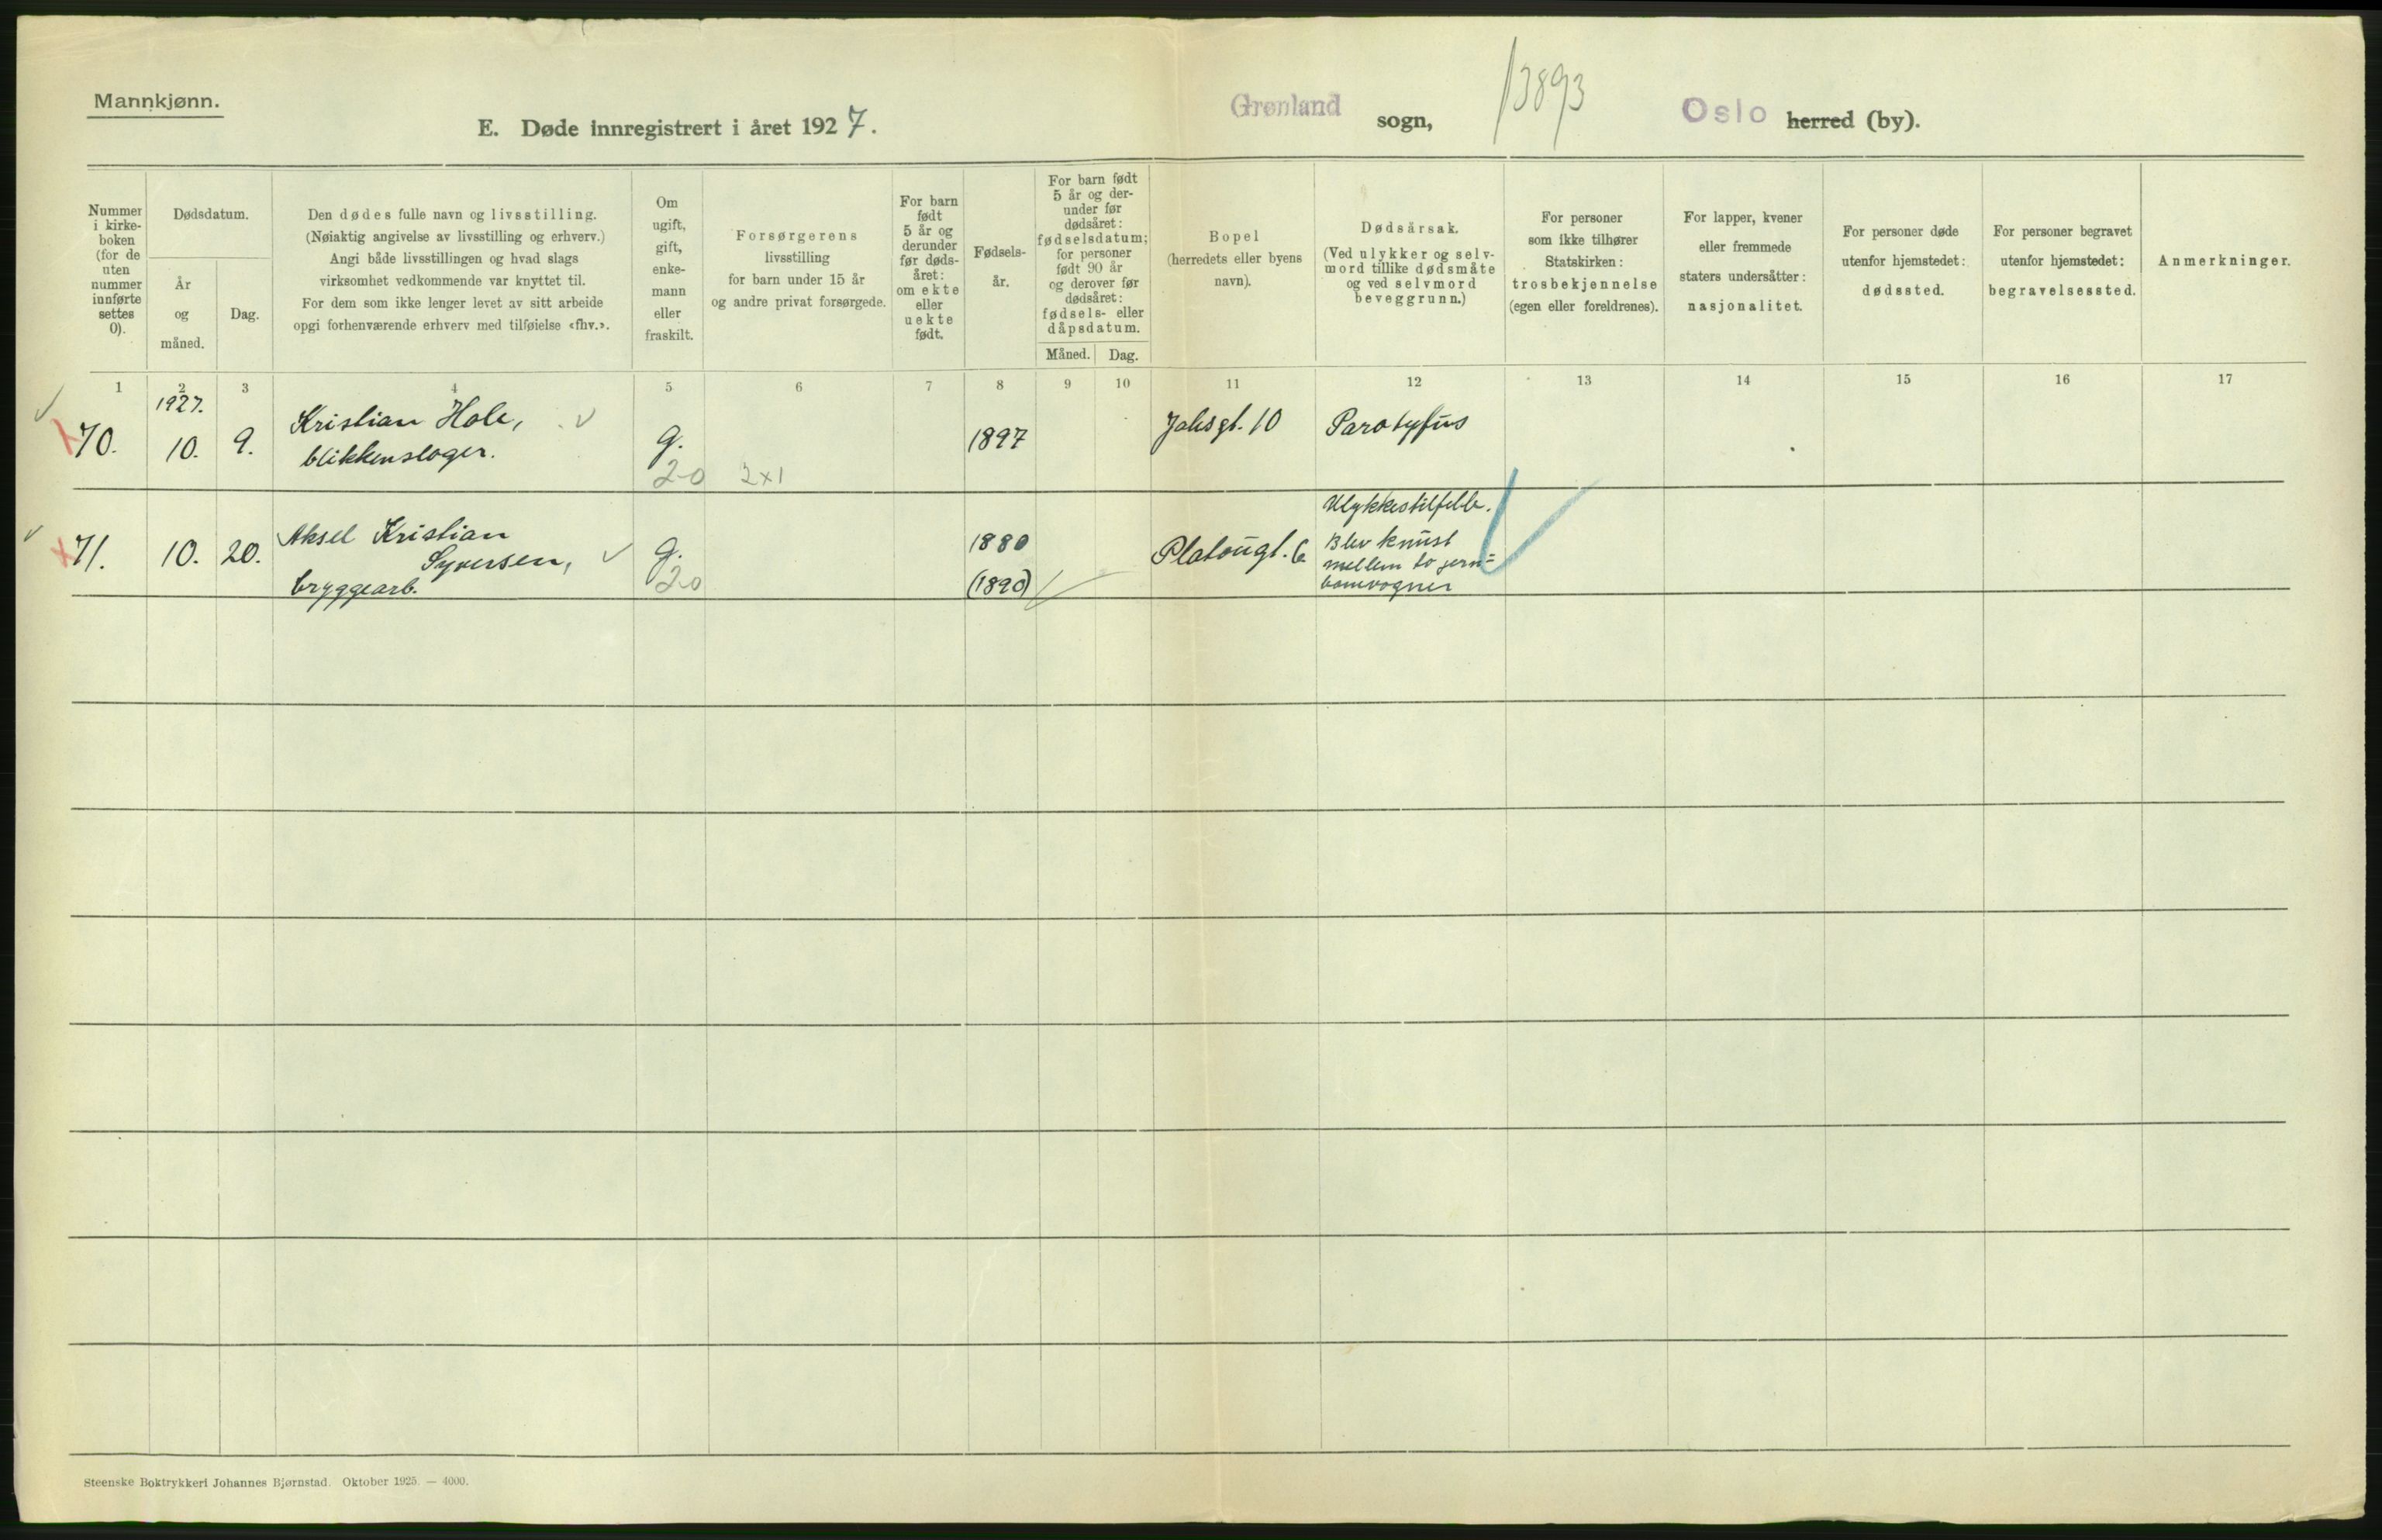 Mannkjønn.
E. Døde innregistrert i året 1927.
Grønland sogn,
13893
Oslo herred (by).
Nummer
i kirke-
boken
(for de
uten
nummer
innførte
settes
0).
Dødsdatum.
År
og
måned.
Dag.
Den dødes fulle navn og livsstilling.
(Nøiaktig angivelse av livsstilling og erhverv.)
Angi både livsstillingen og hvad slags
virksomhet vedkommende var knyttet til.
For dem som ikke lenger levet av sitt arbeide
opgi forhenværende erhverv med tilføielse «fhv.».
Om
ugift,
gift,
enke-
mann
eller
fraskilt.
Forsørgerens
livsstilling
for barn under 15 år
og andre privat forsørgede.
For barn
født
5 år og
derunder
før døds-
året:
om ekte
eller
uekte
født.
Fødsels-
år.
For barn født
5 år og der-
under før
dødsåret:
fødselsdatum;
for personer
født 90 år
og derover før
dødsåret:
fødsels- eller
dåpsdatum.
Måned. Dag.
Bopel
(herredets eller byens
navn).
Dødsårsak.
(Ved ulykker og selv-
mord tillike dødsmåte
og ved selvmord
beveggrunn.)
For personer
som ikke tilhører
Statskirken:
trosbekjennelse
(egen eller foreldrenes).
For lapper, kvener
eller fremmede
staters undersåtter:
nasjonalitet.
For personer døde
utenfor hjemstedet:
dødssted.
For personer begravet
utenfor hjemstedet:
begravelsessted.
Anmerkninger.
1 2 3 4 5 6 7 8 9 10 11 12 13 14 15 16 17
1927.
70. 10. 9.
Kristian Hole,
blikkenslager.
g.
20 2x1
1897
Jahsgt. 10
Paratyfus
71. 10. 20.
Aksel Kristian
Syversen,
bryggearb.
g.
20
1880
(1890)
Platougt. 6
Ulykkestilfelle.
Blev knust
mellem to jern-
banevogner
Steenske Boktrykkeri Johannes Bjørnstad. Oktober 1925. — 4000.